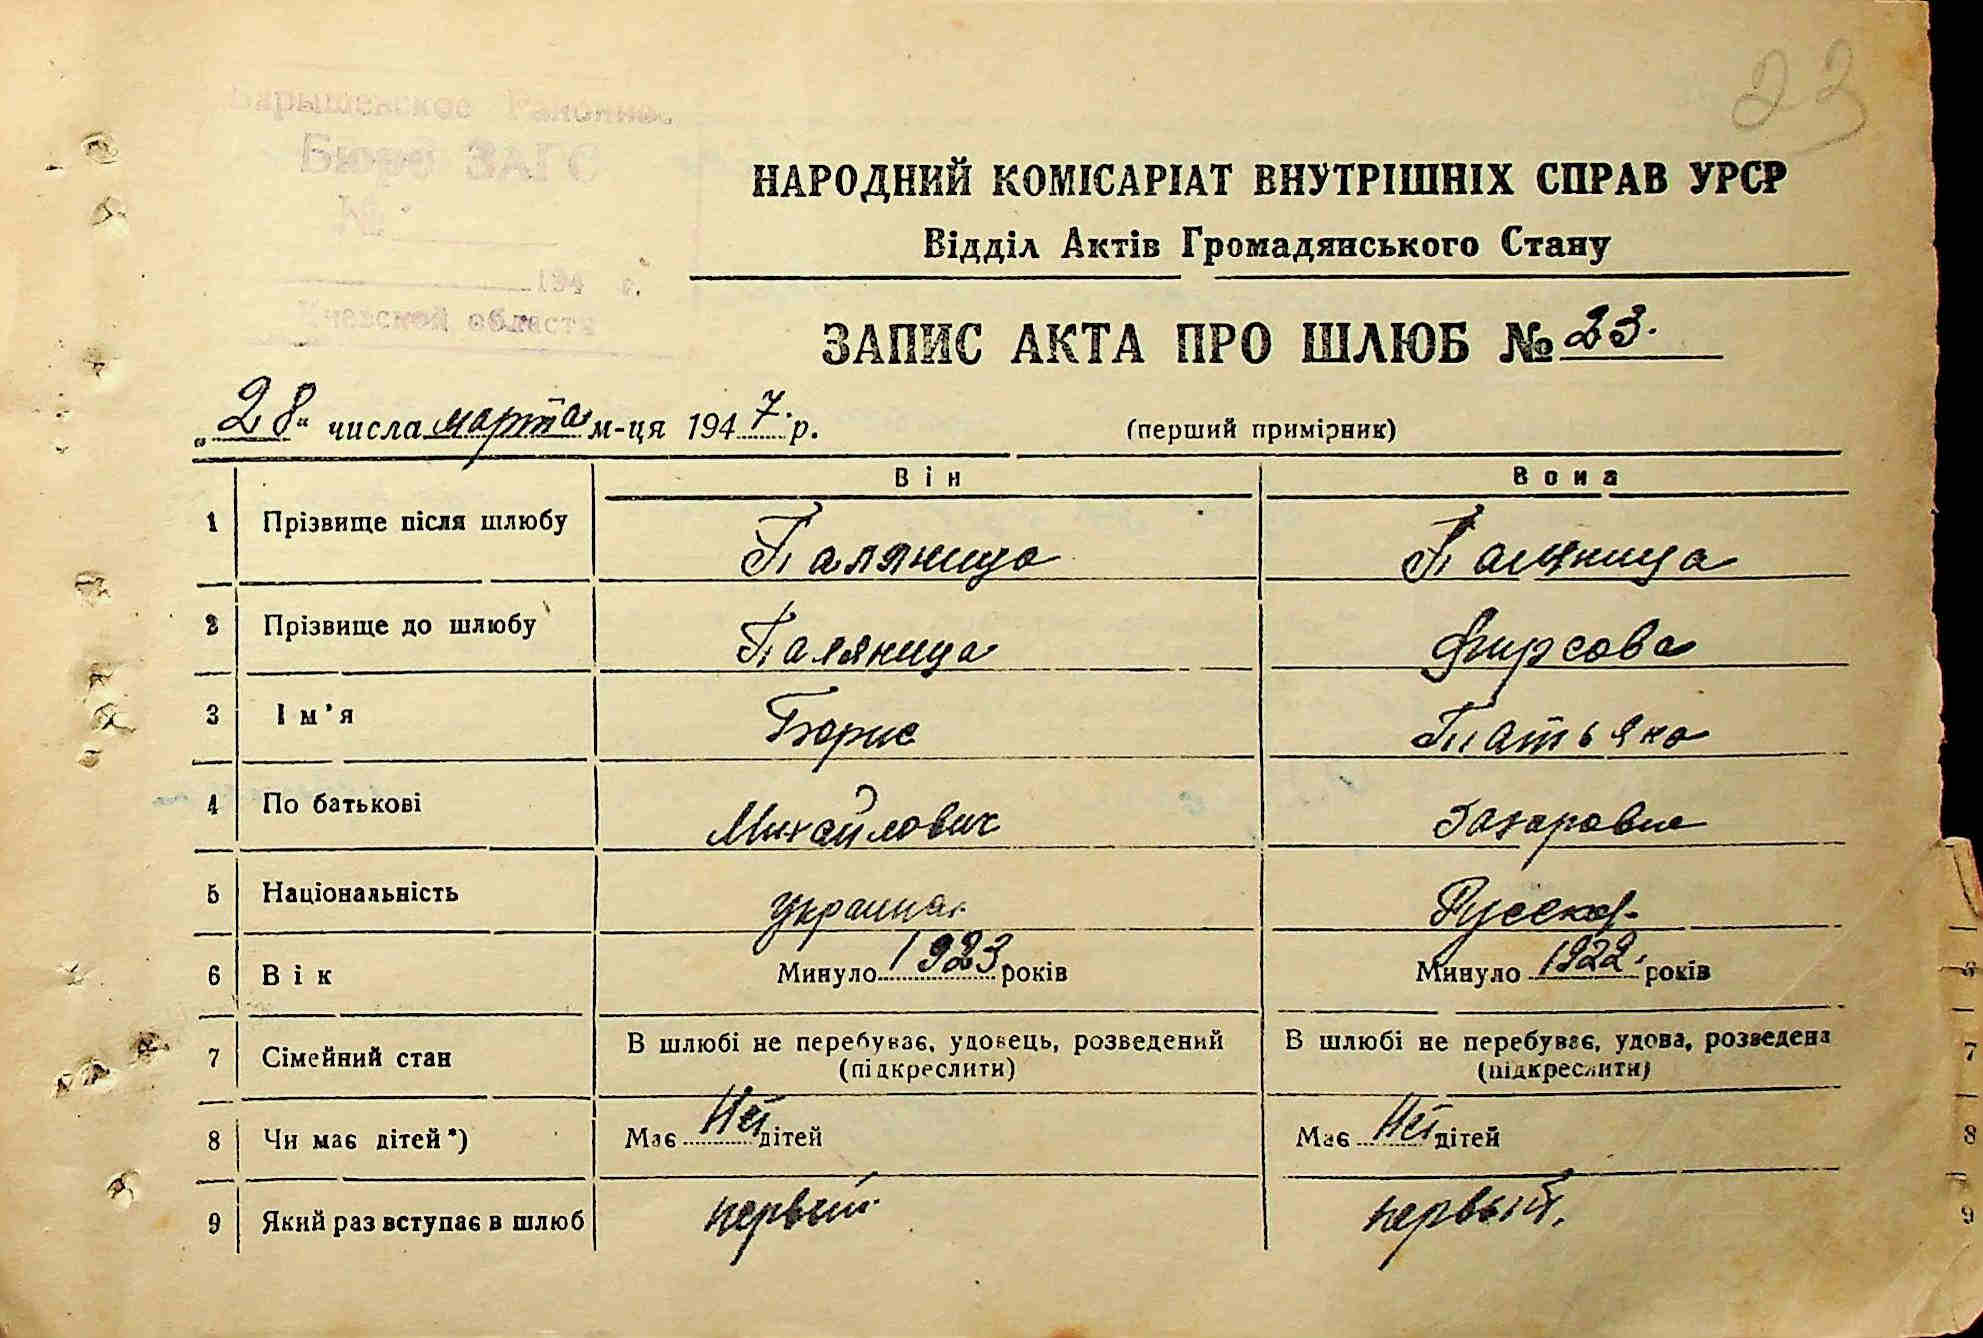 23
Барышевское Районное
Бюро ЗАГС
№
194 г.
Киевской области
НАРОДНИЙ КОМІСАРІАТ ВНУТРІШНІХ СПРАВ УРСР
Відділ Актів Громадянського Стану
ЗАПИС АКТА ПРО ШЛЮБ № 23.
„28“ числа марта м-ця 1947. р.
(перший примірник)
Він Вона
1 Прізвище після шлюбу Паляница Паляница
2 Прізвище до шлюбу Паляница Фирсова
3 Ім'я Борис Татьяна
4 По батькові Михайлович Захаровна
5 Національність украинец Русская
6 Вік Минуло 1923 років Минуло 1922. років
7 Сімейний стан В шлюбі не перебуває, удовець, розведений (підкреслити) В шлюбі не перебуває, удова, розведена (підкреслити)
8 Чи має дітей*) Має Нет дітей Має Нет дітей
9 Який раз вступає в шлюб первый. первый.
6
7
8
9